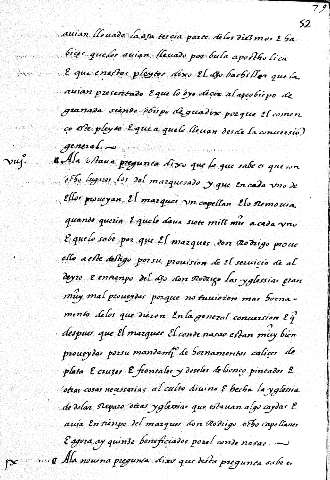 52
avian llevado la dha tercia parte de los diezmos E ha
bises que los avian llevado por bula apostholica
E que en estos pleytos dixo El dho bachiller que la
avian presentado E que lo dyo dezir al arçobispo de
granada siendo obispo de guadix porque El comen
ço este pleyto E que a quelo llevan desde la conversion
general.
viijº A la otava pregunta dixo que lo que sabe es que son
ocho lugares los del marquesado y que En cada vno de
Ellos proveyan El marques vn capellan E lo Removia
quando queria E que le dava siete mill mrs a cada vno
E que lo sabe por que El marques don Rodrigo prove
yo a este testigo por su provision de El servicio de al
deyre E en tienpo del dho don Rodrigo las yglesias eran
muy mal proveydas porque no tuvieron mas horna
mento de los que dieron En la general conversion E q
despues que El marques El conde nasao estan muy bien
proveydas por su mandamiº de hornamentos calices de
plata E cruzes E frontales y doseles de lienço pintados E
otras cosas necesarias al culto divino E hecho la yglesia
de dolar Reparo otras yglesias que estavan algo caydas E
avia En tienpo del marques don Rodrigo ocho capellanes
E agora ay quinze beneficiados por el conde nasao.
ix A la novena pregunta dixo que desta pregunta sabe es